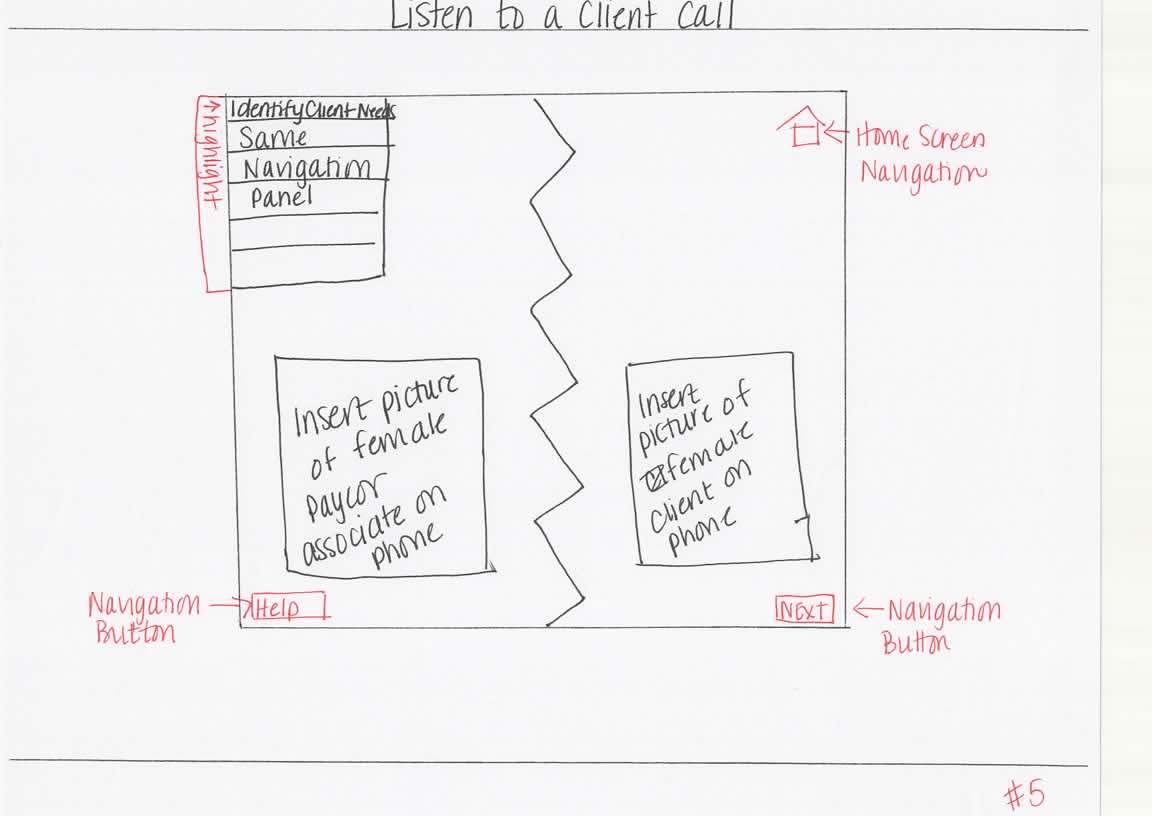 Listen to a Client Call
Identify Client Needs
Same
Navigation
Panel
highlight
Home Screen
Navigation
Insert picture
of female
paycor
associate on
phone
Insert
picture of
female
client on
phone
Navigation
Button
Help
NEXT
Navigation
Button
#5